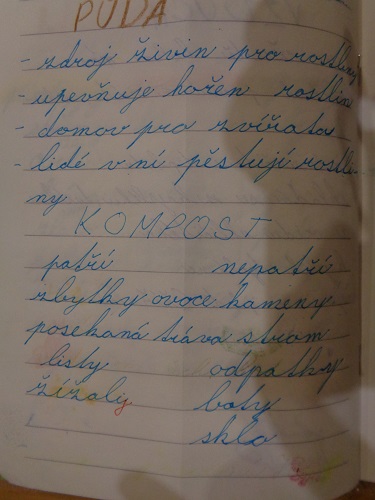 PŮDA
- zdroj živin pro rostliny
- upevňuje kořen rostlin
- domov pro zvířata
- lidé v ní pěstují rostli-
ny
KOMPOST
patří nepatří
zbytky ovoce kameny
posekaná tráva strom
listy odpatky
žížaly boty
sklo